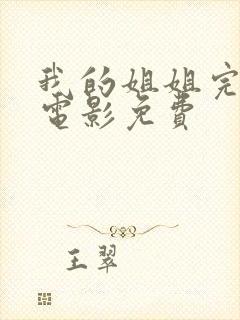 我的姐姐完
电影免费
王翠